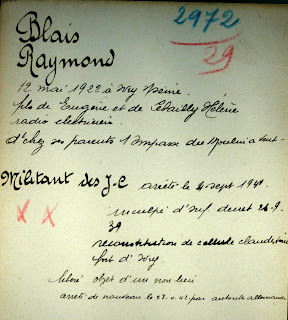 2972
29
Blais
Raymond
12 mai 1922 à Ivry Seine.
fils de Eugène et de Hélène
radio electricien
d'chez ses parents 1 Impasse du
Militant des J-C arrêté le sept 1941
inculpé d'inf. decret 26-9-
39
reconstitution de cellule clandestine
fort d'Ivry.
libéré objet d'un non lieu
arrêté de nouveau le 42 par autorités allemandes